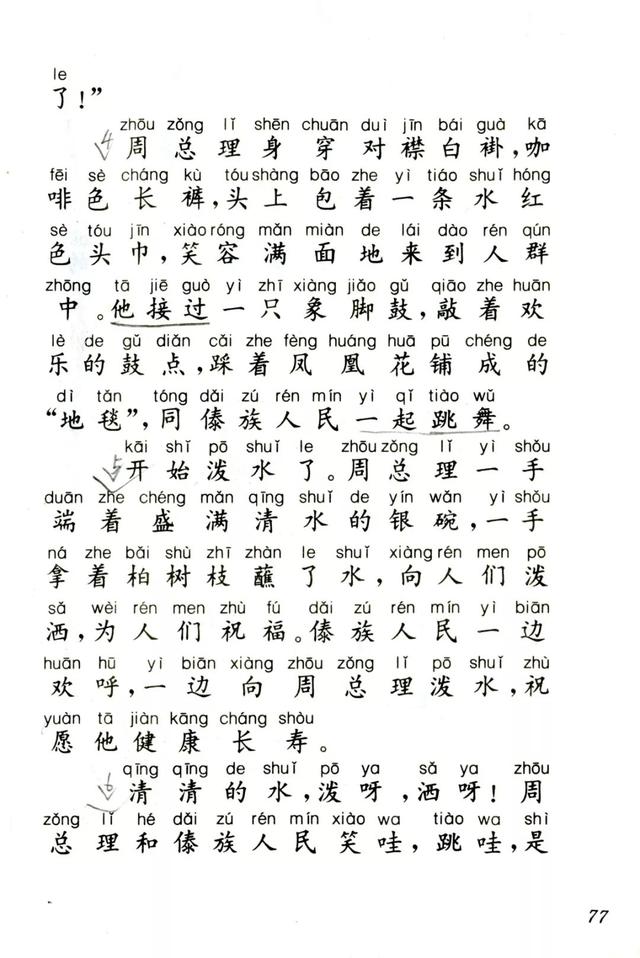 le
了！”
zhōu zǒng lǐ shēn chuān duì jīn bái guà kā
4 周总理身穿对襟白褂，咖
fēi sè cháng kù tóu shàng bāo zhe yì tiáo shuǐ hóng
啡色长裤，头上包着一条水红
sè tóu jīn xiào róng mǎn miàn de lái dào rén qún
色头巾，笑容满面地来到人群
zhōng tā jiē guò yì zhī xiàng jiǎo gǔ qiāo zhe huān
中。他接过一只象脚鼓，敲着欢
lè de gǔ diǎn cǎi zhe fèng huáng huā pū chéng de
乐的鼓点，踩着凤凰花铺成的
dì tǎn tóng dǎi zú rén mín yì qǐ tiào wǔ
“地毯”，同傣族人民一起跳舞。
kāi shǐ pō shuǐ le zhōu zǒng lǐ yì shǒu
5 开始泼水了。周总理一手
duān zhe chéng mǎn qīng shuǐ de yín wǎn yì shǒu
端着盛满清水的银碗，一手
ná zhe bǎi shù zhī zhàn le shuǐ xiàng rén men pō
拿着柏树枝蘸了水，向人们泼
sǎ wèi rén men zhù fú dǎi zú rén mín yì biān
洒，为人们祝福。傣族人民一边
huān hū yì biān xiàng zhōu zǒng lǐ pō shuǐ zhù
欢呼，一边向周总理泼水，祝
yuàn tā jiàn kāng cháng shòu
愿他健康长寿。
qīng qīng de shuǐ pō ya sǎ ya zhōu
6 清清的水，泼呀，洒呀！周
zǒng lǐ hé dǎi zú rén mín xiào wa tiào wa shì
总理和傣族人民笑哇，跳哇，是
77